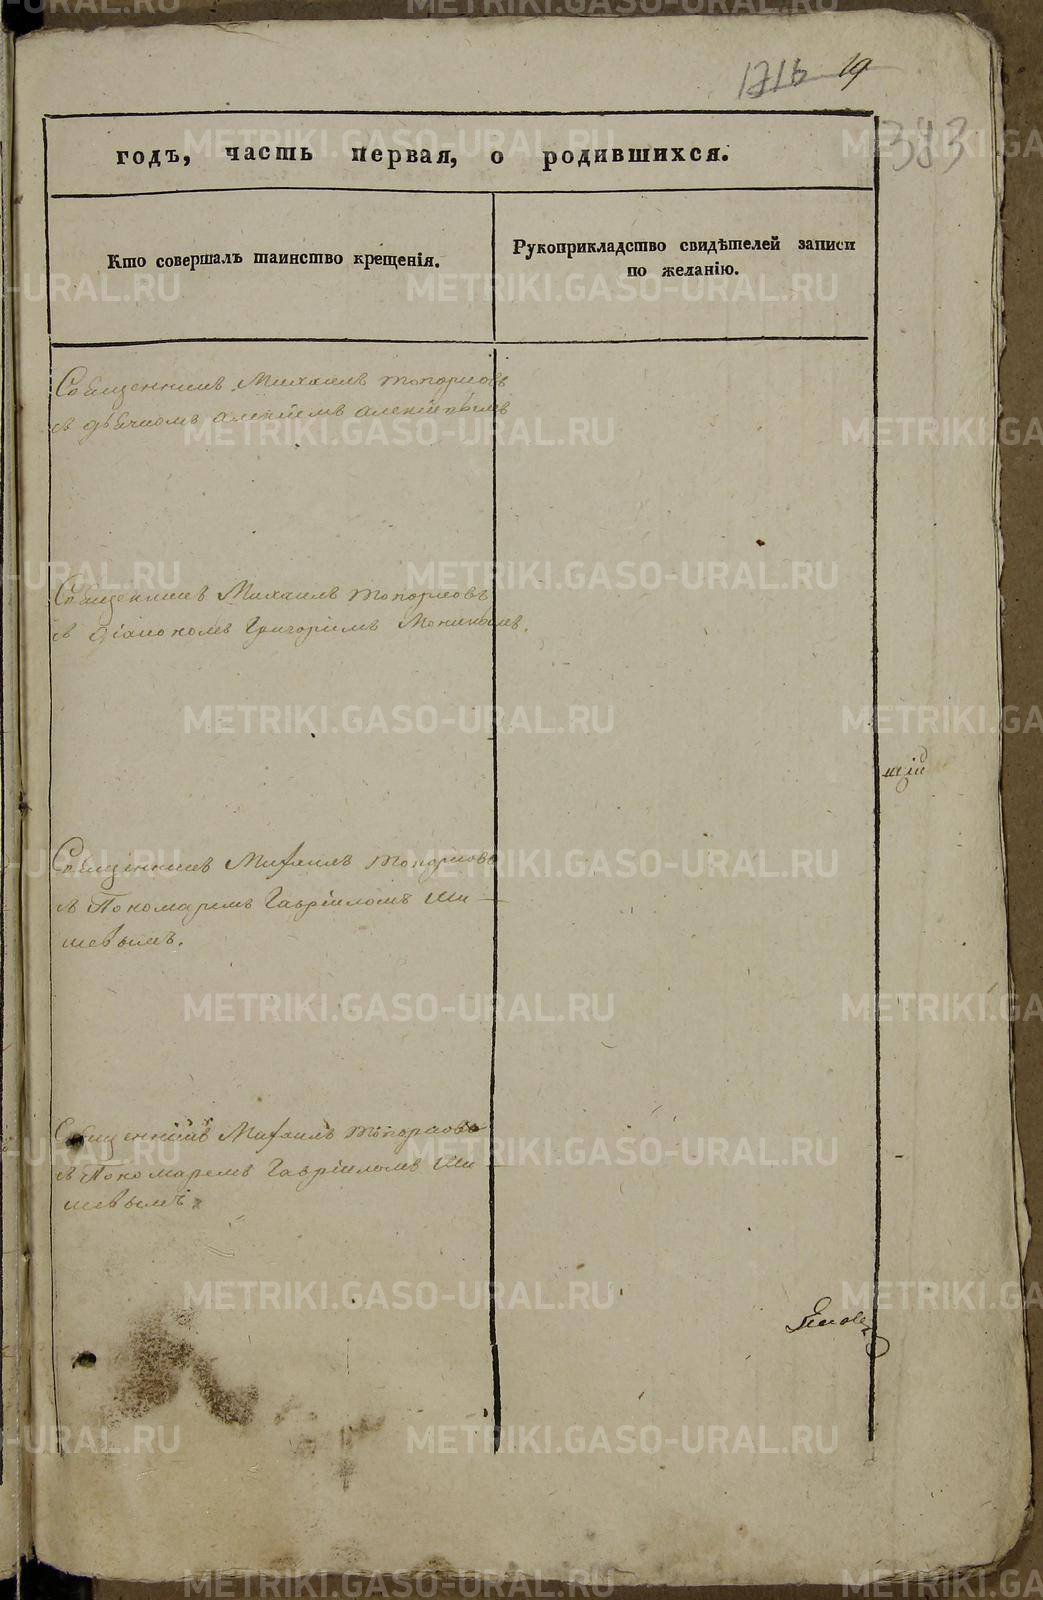 1716 19
383
годъ, часть первая, о родившихся.
Кто совершалъ таинство крещенія.
Рукоприкладство свидѣтелей записи
по желанію.
Священникъ Михаилъ Топорковъ
съ дьячкомъ Алексіемъ
Священникъ Михаилъ Топорковъ
съ Діакономъ Григоріемъ
щій
Священникъ Михаилъ Топорковъ
съ Пономаремъ Гавріиломъ Ши-
шевымъ.
Священникъ Михаилъ Топорковъ
съ Пономаремъ Гавріиломъ Ши
шевымъ.
METRIKI.GASO-URAL.RU